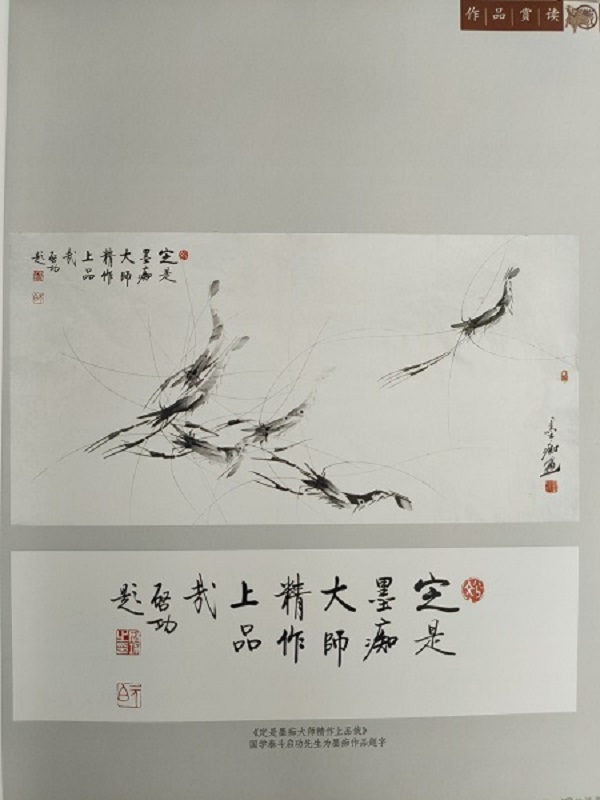 作品赏读
定是
墨痴
大师
精作
上品
哉
启功
题
墨痴画
定是
墨痴
大師
精作
上品
哉
啓功
题
《定是墨痴大师精作上品哉》
国学泰斗启功先生为墨痴作品题字